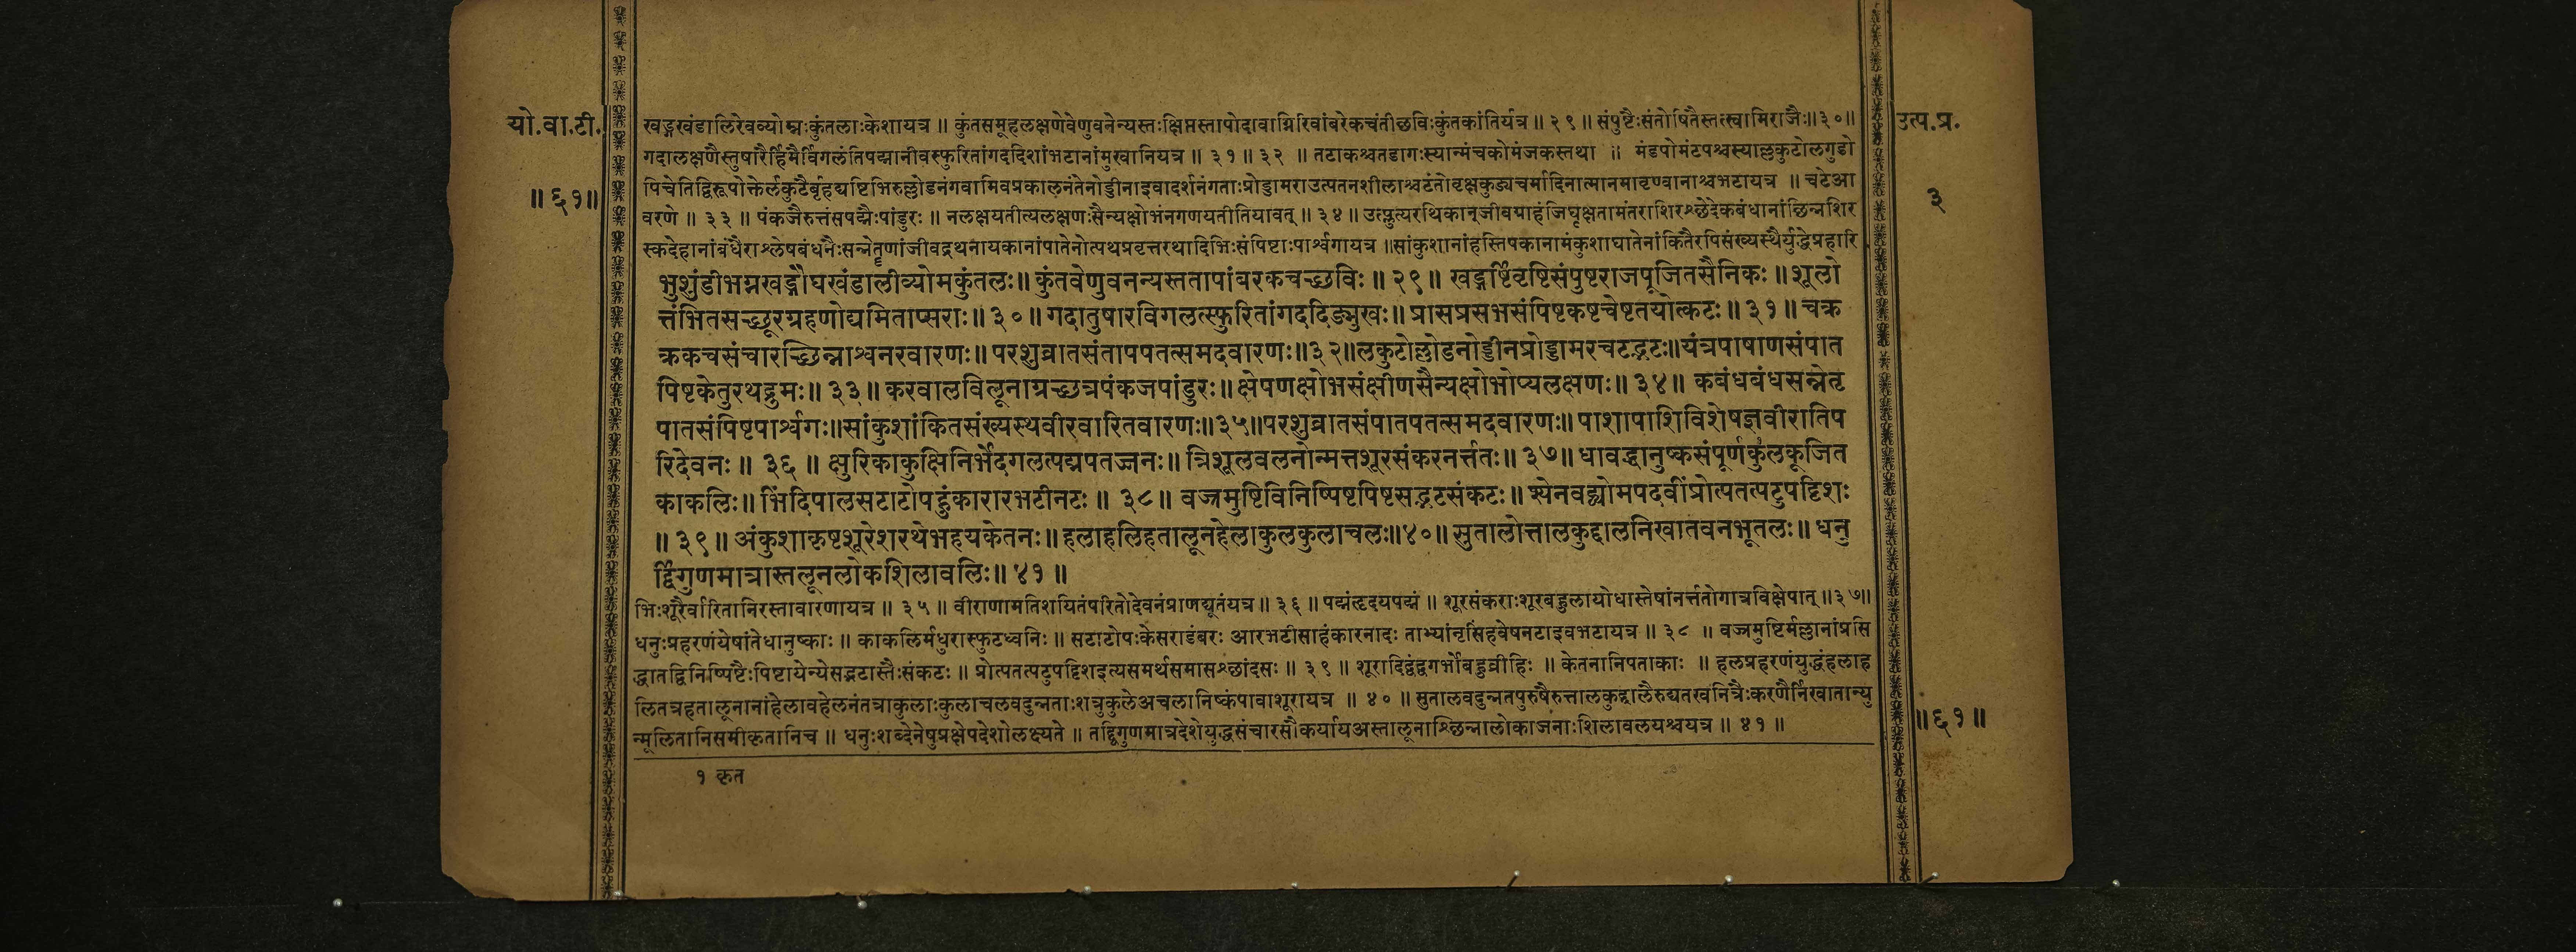 यो.वा.टी.
॥ ६१॥
उत्प.प्र.
३
॥ ६१॥
खड्गखंडालिरेवव्योम्नःकुंतलाःकेशायत्र ॥ कुंतसमूहलक्षणेवेणुवनेन्यस्तःक्षिप्तस्तापोदावाग्निरिवांबरेकचंतीछविःकुंतकांतिर्यत्र ॥ २९॥ संपुष्टैःसंतोषितैस्तत्स्वामिराजैः॥३०॥
गदालक्षणैस्तुषारैर्हिमैर्विगलंतिपद्मानीवस्फुरितांगददिशांभटानांमुखानियत्र ॥ ३१॥ ३२ ॥ तटाकश्चतडागःस्यान्मंचकोमंजकस्तथा ॥ मंडपोमंटपश्चस्याल्लकुटोलगुडो
पिचेतिद्विरूपोक्तेर्लकुटैर्बृहद्यष्टिभिरुल्लोडनंगवामिवप्रकालनंतेनोड्डीनाइवादर्शनंगताःप्रोड्डामराउत्पतनशीलाश्चटंतोवृक्षकुड्यचर्मादिनात्मानमावृण्वानाश्चभटायत्र ॥ चटेआ
वरणे ॥ ३३॥ पंकजैरुत्तंसपद्मैःपांडुरः ॥ नलक्षयतीत्यलक्षणःसैन्यक्षोभंनगणयतीतियावत् ॥ ३४॥ उत्प्लुत्यरथिकान्जीवग्राहंजिघृक्षतामंतराशिरश्छेदेकबंधानांछिन्नशिर
स्कदेहानांबंधैराश्लेषबंधनैःसन्नेतॄणांजीवद्रथनायकानांपातेनोत्पथप्रवृत्तरथादिभिःसंपिष्टाःपार्श्वगायत्र ॥सांकुशानांहस्तिपकानामंकुशाघातेनांकितैरपिसंख्यस्थैर्युद्धेप्रहारि
भुशुंडीभग्नखड्गौघखंडालीव्योमकुंतलः॥ कुंतवेणुवनन्यस्ततापांबरकचच्छविः ॥ २९॥ खड्गर्ष्टिवृष्टिसंपुष्टराजपूजितसैनिकः ॥ शूलो
त्तंभितसच्छूरग्रहणोद्यमिताप्सराः॥ ३०॥ गदातुषारविगलत्स्फुरितांगददिङ्मुखः॥ प्रासप्रसभसंपिष्टकष्टचेष्टतयोत्कटः॥ ३१॥ चक्र
क्रकचसंचारच्छिन्नाश्वनरवारणः॥ परशुव्रातसंतापपतत्समदवारणः॥३२॥लकुटोल्लोडनोड्डीनप्रोड्डामरचटद्भटः॥यंत्रपाषाणसंपात
पिष्टकेतुरथद्रुमः॥ ३३॥ करवालविलूनाग्रच्छत्रपंकजपांडुरः॥ क्षेपणक्षोभसंक्षीणसैन्यक्षोभोप्यलक्षणः॥ ३४॥ कबंधबंधसन्नेतृ
पातसंपिष्टपार्श्वगः॥सांकुशांकितसंख्यस्थवीरवारितवारणः॥३५॥परशुव्रातसंपातपतत्समदवारणः॥ पाशापाशिविशेषज्ञवीरातिप
रिदेवनः ॥ ३६ ॥ क्षुरिकाकुक्षिनिर्भेदगलत्पद्मपतज्जनः॥ त्रिशूलवलनोन्मत्तशूरसंकरनर्त्ततः॥ ३७॥ धावद्धानुष्कसंपूर्णकुलकूजित
काकलिः॥ भिंदिपालसटाटोपहुंकारारभटीनटः ॥ ३८॥ वज्रमुष्टिविनिष्पिष्टपिष्टसद्भटसंकटः॥ श्येनवद्व्योमपदवींप्रोत्पतत्पटुपट्टिशः
॥ ३९॥ अंकुशाकृष्टशूरेशरथेभहयकेतनः॥ हलाहलिहतालूनहेलाकुलकुलाचलः॥४०॥ सुतालोत्तालकुद्दालनिखातवनभूतलः॥ धनु
र्द्विगुणमात्रास्तलूनलोकशिलावलिः॥ ४१ ॥
भिःशूरैर्वारितानिरस्तावारणायत्र ॥ ३५ ॥ वीराणामतिशयितंपरितोदेवनंप्राणद्यूतंयत्र ॥ ३६॥ पद्मंहृदयपद्मं ॥ शूरसंकराःशूरबहुलायोधास्तेषांनर्त्ततोगात्रविक्षेपात् ॥३७॥
धनुःप्रहरणंयेषांतेधानुष्काः ॥ काकलिर्मधुरास्फुटध्वनिः ॥ सटाटोपःकेसराडंबरः आरभटीसाहंकारनादः ताभ्यांनृसिंहवेषनटाइवभटायत्र ॥ ३८ ॥ वज्रमुष्टिर्मल्लानांप्रसि
द्धातद्विनिष्पिष्टैःपिष्टायेन्येसद्भटास्तैःसंकटः ॥ प्रोत्पतत्पटुपट्टिशइत्यसमर्थसमासश्छांदसः ॥ ३९॥ शूरादिद्वंद्वगर्भोबहुव्रीहिः ॥ केतनानिपताकाः ॥ हलप्रहरणंयुद्धंहलाह
लितत्रहतालूनानांहेलावहेलनंतत्राकुलाःकुलाचलवदुन्नताःशत्रुकुलेअचलानिष्कंपावाशूरायत्र ॥ ४० ॥ सुतालवदुन्नतपुरुषैरुत्तालकुद्दालैरुद्यतखनित्रैःकरणैर्निखातान्यु
न्मूलितानिसमीकृतानिच ॥ धनुःशब्देनेषुप्रक्षेपदेशोलक्ष्यते ॥ तद्द्विगुणमात्रदेशेयुद्धसंचारसौकर्यायअस्तालूनाश्छिन्नालोकाजनाःशिलावलयश्चयत्र ॥ ४१ ॥
१ कृत